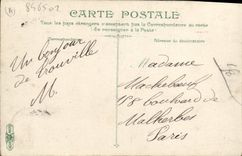 (A) 896502
CARTE POSTALE
Tous les pays étrangers n'acceptent pas la Correspondance au recto
(Se renseigner à la Poste)
Un bonjour
de Trouville
M.
Madame
Boulevard de
Malherbes
Paris